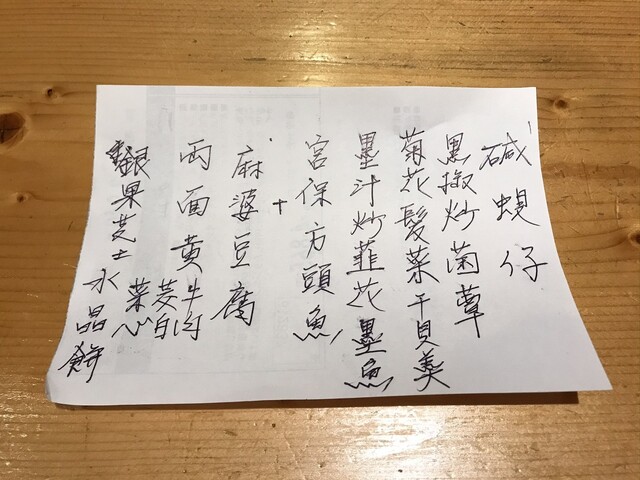 碱蜆仔
黑椒炒菌蕈
菊花髮菜干貝羹
墨汁炒韮花墨魚
宮保方頭魚
+
麻婆豆腐
両面黄牛肉
茭白
菜心
銀果芝士水晶餅